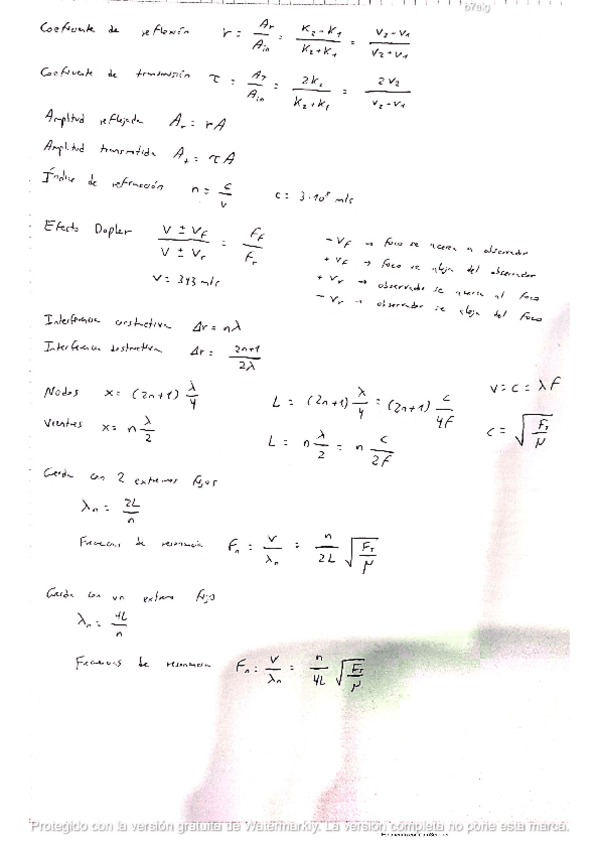 Coeficiente de reflexión r = Ar/Ain = (K2 - K1)/(K2 + K1) = (v2 - v1)/(v2 + v1)
Coeficiente de transmisión τ = AT/Ain = 2k1/(K2 + K1) = 2v2/(v2 - v1)
Amplitud reflejada Ar = rA
Amplitud transmitida At = τA
Índice de refracción n = c/v c = 3·10⁸ m/s
Efecto Dopler (V ± VF)/(V ± Vr) = FF/Fr
- VF → foco se acerca a observador
+ VF → foco se aleja del observador
+ Vr → observador se acerca al foco
- Vr → observador se aleja del foco
V = 343 m/s
Interferencia constructiva Δr = nλ
Interferencia destructiva Δr = (2n+1)/2λ
Nodos x = (2n+1) λ/4 L = (2n+1) λ/4 = (2n+1) c/4F v = c = λF
Vientres x = n λ/2 L = n λ/2 = n c/2F c = √(FT/μ)
Cuerda con 2 extremos fijos
λn = 2L/n
Frecuencias de resonancia Fn = v/λn = n/2L √(FT/μ)
Cuerda con un extremo fijo
λn = 4L/n
Frecuencias de resonancia Fn = v/λn = n/4L √(FT/μ)
Protegido con la versión gratuita de Watermarkly. La versión completa no pone esta marca.